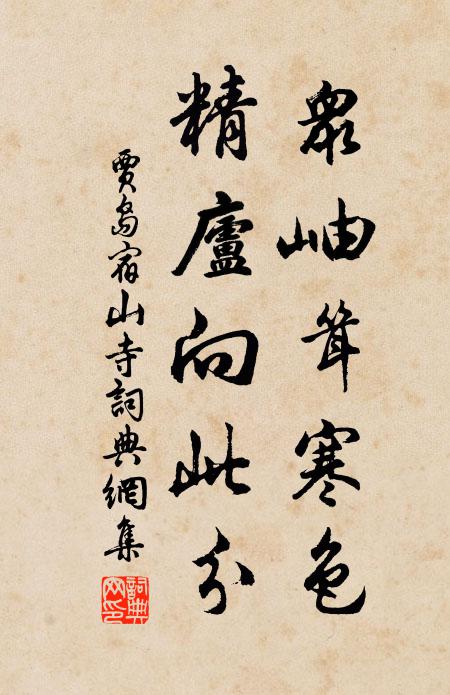 眾岫耸寒色
精廬向此分
賈島宿山寺詞典網集
詞典网印